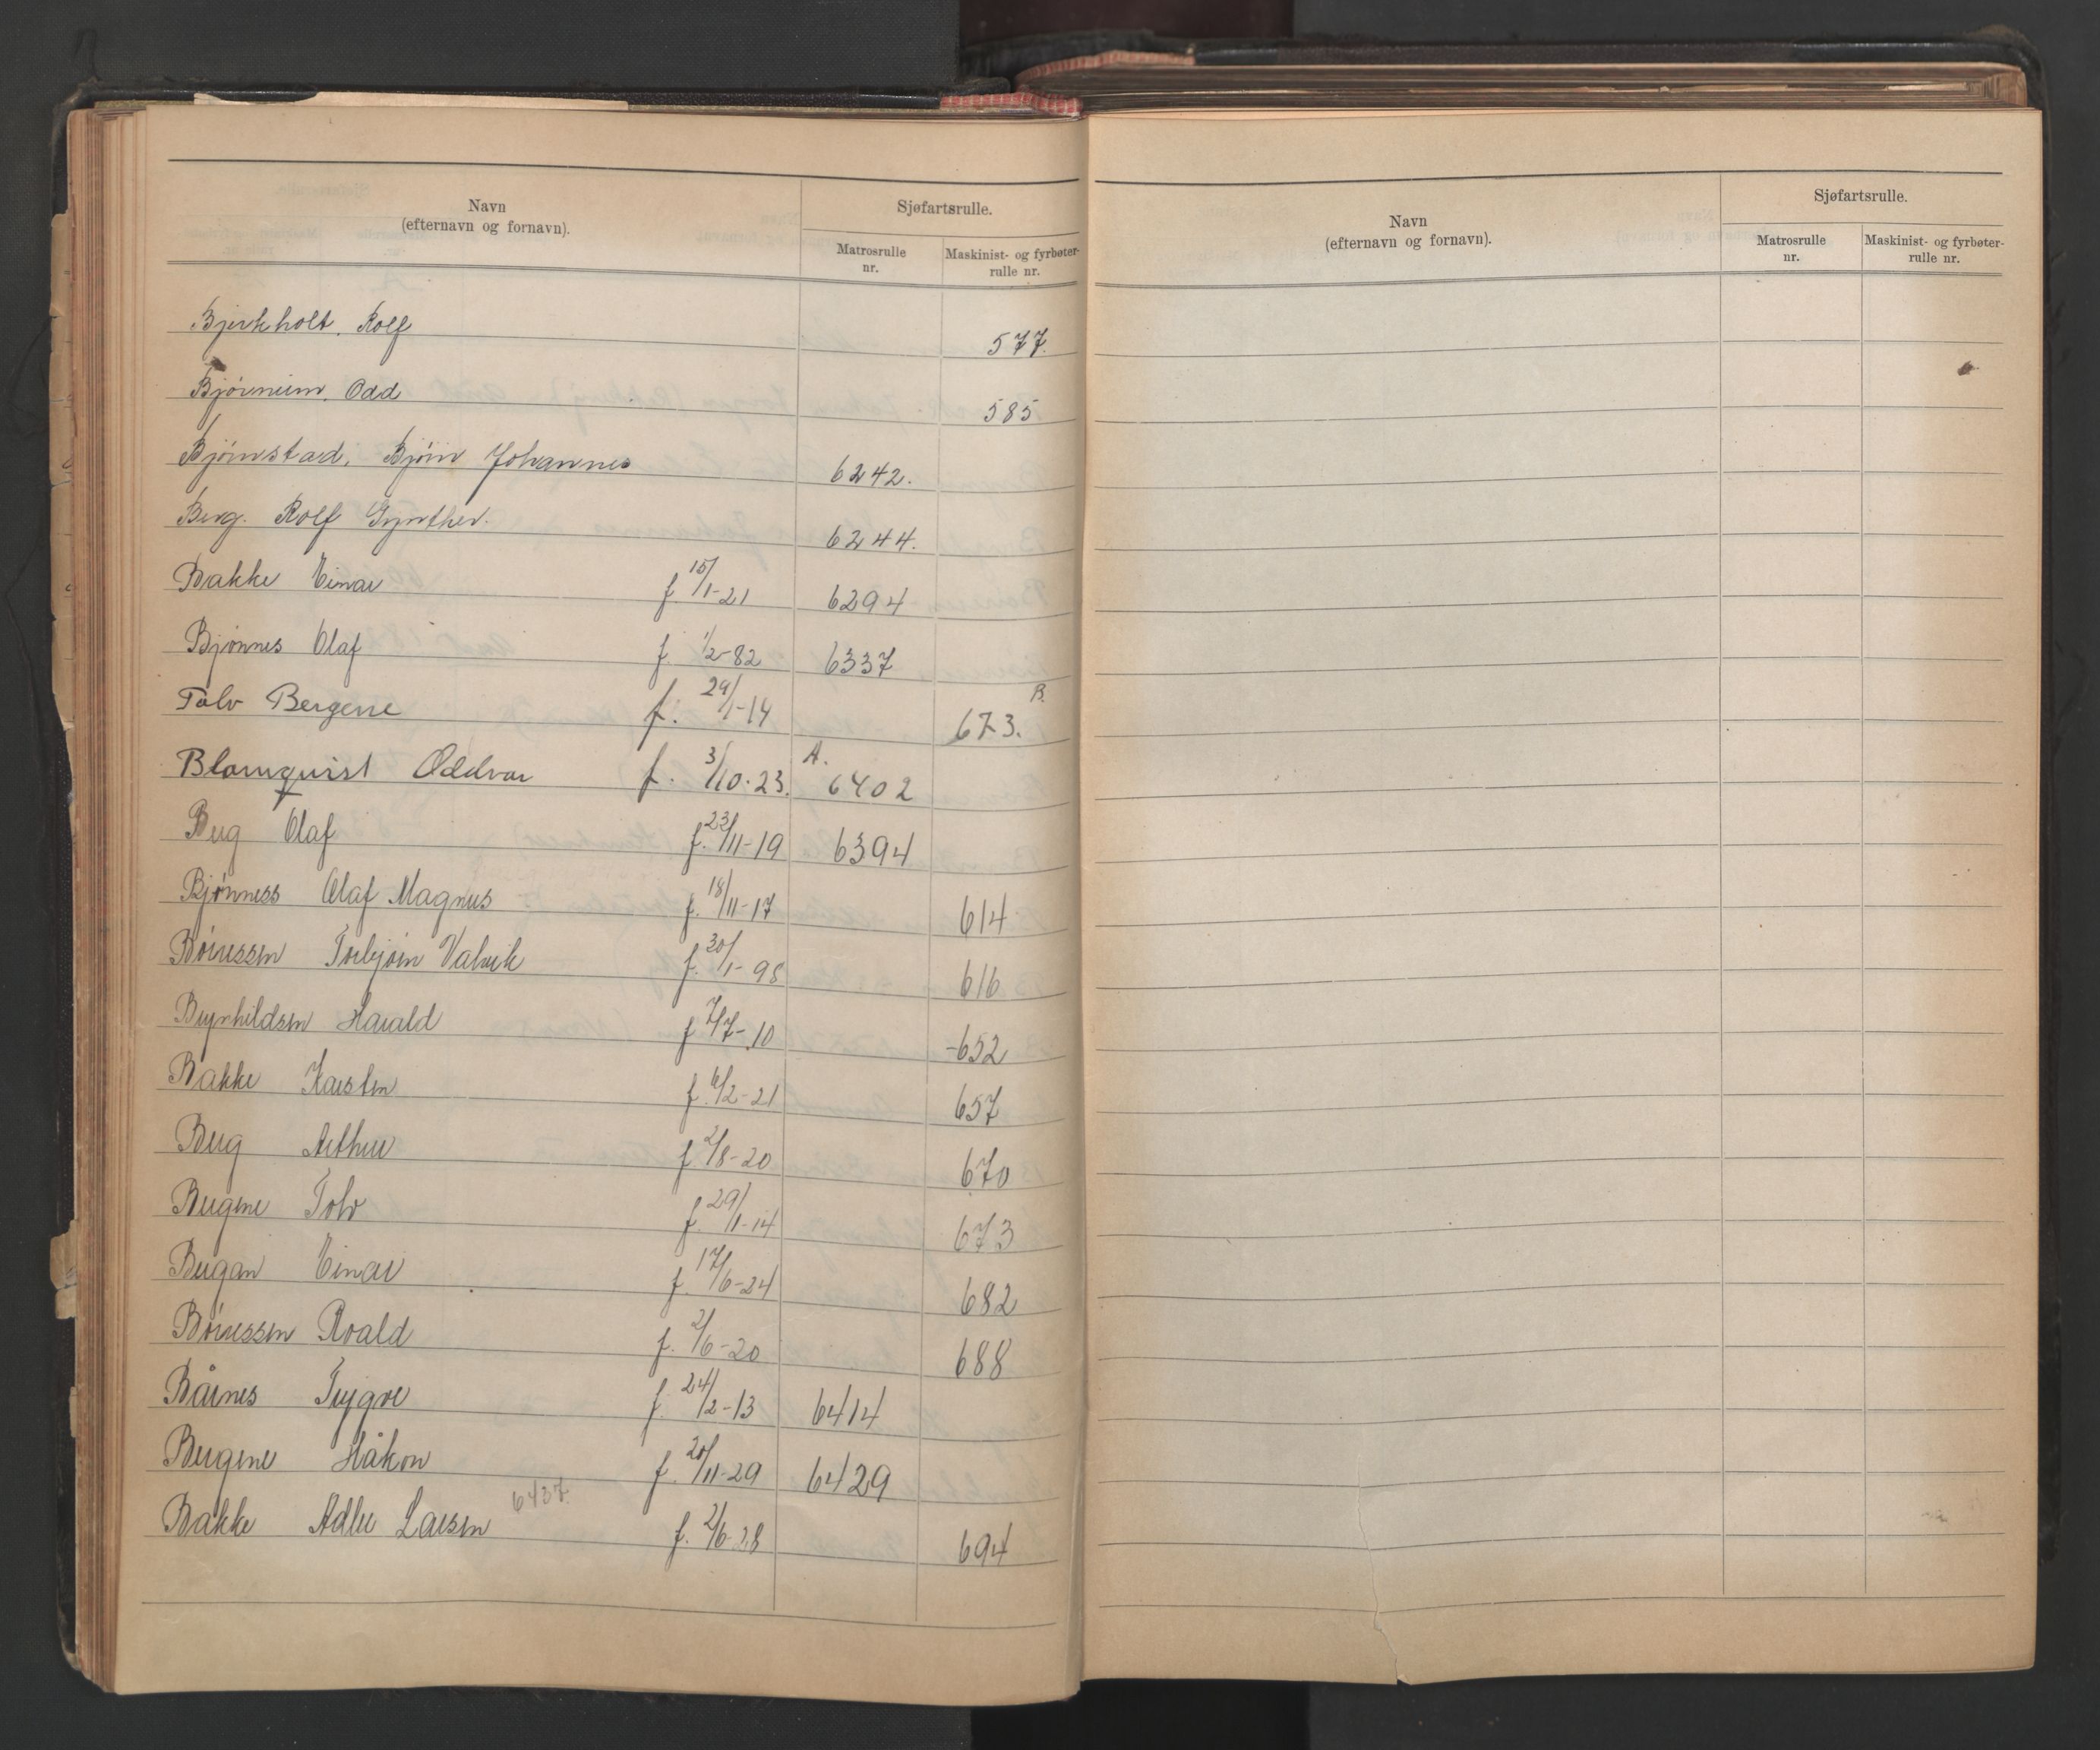 Navn
(efternavn og fornavn).
Sjøfartsrulle.
Matrosrulle
nr.
Maskinist- og fyrbøter-
rulle nr.
Bjerkholt, Rolf 577.
Bjørneim, Odd 585
Bjørnstad, Bjørn Johannes 6242.
Berg. Rolf Gynther. 6244.
Bakke Einar f. 15/1-21 6294
Bjønnes Olaf f. 1/2-82 6337
Tolv Bergene f. 29/1-14 673. B.
Blomquist Oddvar f. 3/10-23. A. 6402
Berg Olaf f. 23/11-19 6394
Bjønness Olaf Magnus f. 18/11-17 614
Børressen Torbjørn Valvik f. 30/1-98 616
Brynhildsen Harald f 7/7-10 -652
Bakke Karsten f. 6/2-21 657
Berg Arthur f. 2/8-20 670
Bergene Tolv f. 29/1-14 673
Bergan Einar f. 17/6-24 682
Børressen Roald f. 2/6-20 688
Bårnes Trygve f. 24/2-13 6414
Bergene Håkon f. 20/11-29 6429
Bakke Adler Larsen 6437. f. 2/6-28 694
Navn
(efternavn og fornavn).
Sjøfartsrulle.
Matrosrulle
nr.
Maskinist- og fyrbøter-
rulle nr.